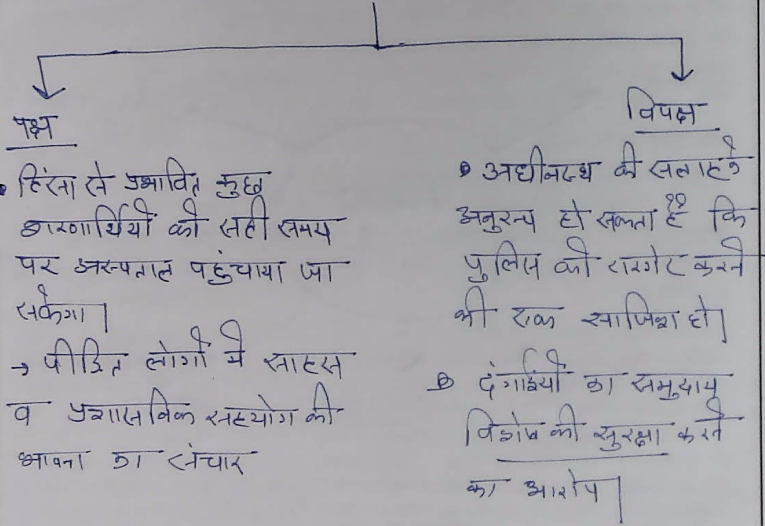 पक्ष
• हिंसा से प्रभावित कुछ
शरणार्थियों को सही समय
पर अस्पताल पहुंचाया जा
सकेगा|
→ पीडित लोगों मे साहस
व प्रशासनिक सहयोग की
भावना का संचार
विपक्ष
• अधीनस्थ की सलाह के
अनुरूप हो सकता है कि
पुलिस को टारगेट करने
की एक साजिश हो|
• दंगाईयों का समुदाय
विशेष की सुरक्षा करने
का आरोप|